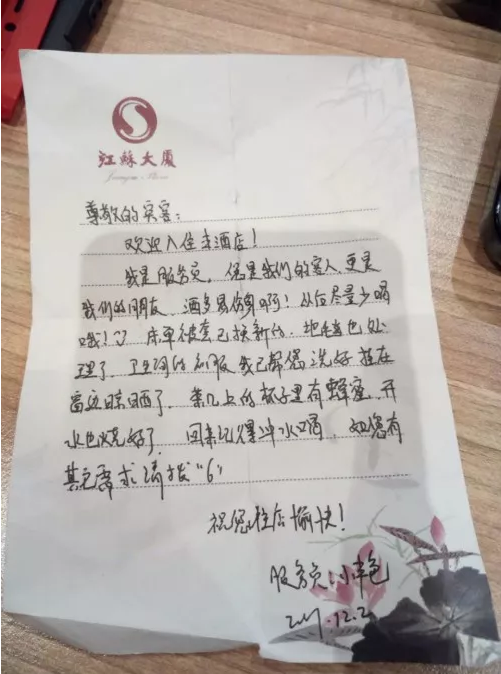 江苏大厦
尊敬的宾客:
欢迎入住我酒店!
我是服务员,您是我们的客人更是
我们的朋友 酒多易伤身啊!以后尽量少喝
哦! 床单被套已换新的,地毯也处
理了 卫生间的衣服我已帮您洗好挂在
窗边晾晒了,茶几上的杯子里有蜂蜜,开
水也烧好了 回来记得冲水喝,如您有
其它要求请拨“6”
祝您住店愉快!
服务员小艳